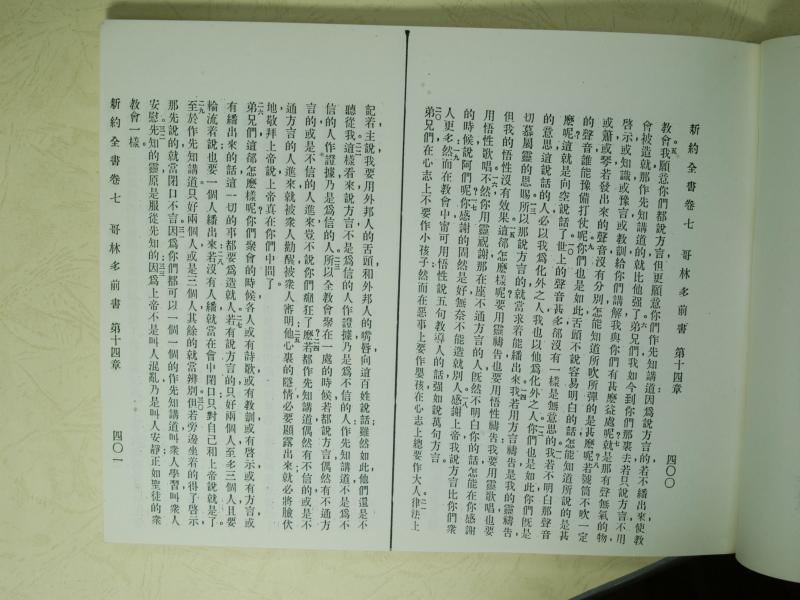 新約全書卷七　哥林多前書　第十四章　四〇〇
教會我願意你們都說方言但更願意你們作先知講道因爲說方言的若不繙出來使教
會被造就那作先知講道的就比他强了弟兄們我如今到你們那裏去若只說方言不用
啓示或知識或豫言或教訓給你們講解我與你們有甚麼益處呢就是那有聲無氣的物
或簫或琴若發出來的聲音沒有分別怎能知道所吹所彈的是甚麼呢若號筒不吹一定
的聲音誰能豫備打仗呢你們也是如此舌頭不說容易明白的話怎能知道所說的是甚
麼呢這就是向空說話了世上的聲音甚多都沒有一樣是無意思的我若不明白那聲音
的意思這說話的人必以我爲化外之人我也以他爲化外之人你們也是如此你們旣是
切慕屬靈的恩賜所以那說方言的就當求着能繙出來我若用方言禱告是我的靈禱告
但我的悟性沒有效果這却怎麽樣呢要用靈禱告也要用悟性禱告我要用靈歌唱也要
用悟性歌唱不然你用靈祝謝那在座不通方言的人旣然不明白你的話怎能在你感謝
的時候說阿們呢你感謝的固然是好無奈不能造就別人感謝上帝我說方言比你們衆
人更多然而在教會中寧可用悟性說五句教導人的話强如說萬句方言
弟兄們在心志上不要作小孩子然而在惡事上要作嬰孩在心志上總要作大人律法上
記着主說我要用外邦人的舌頭和外邦人的嘴唇向這百姓說話雖然如此他們還是不
聽從我這樣看來說方言不是爲信的人作證據乃是爲不信的人作先知講道不是爲不
信的人作證據乃是爲信的人所以全教會聚在一處的時候若都說方言偶然有不通方
言的或是不信的人進來豈不說你們癲狂了麽若都作先知講道偶然有不信的或是不
通方言的人進來就被衆人勸醒被衆人審明他心裏的隱情必要顯露出來就必將臉伏
地敬拜上帝說上帝真在你們中間了
弟兄們這却怎麽樣呢你們聚會的時候各人或有詩歌或有教訓或有啓示或有方言或
有繙出來的話這一切的事都要爲造就人若有說方言的只好兩個人至多三個人且要
輪流着說也要一個人繙出來若沒有人繙就當在會中閉口只對自己和上帝說就是了
至於作先知講道的只好兩個人或是三個人其餘的就當辨別但若旁邊坐着的得了啓示
那先說的就當閉口不言因爲你們都可以一個一個的作先知講道叫衆人學習叫衆人
安慰先知的靈原是服從先知的因爲上帝不是叫人混亂乃是叫人安靜正如聖徒的衆
教會一樣
新約全書卷七　哥林多前書　第十四章　四〇一